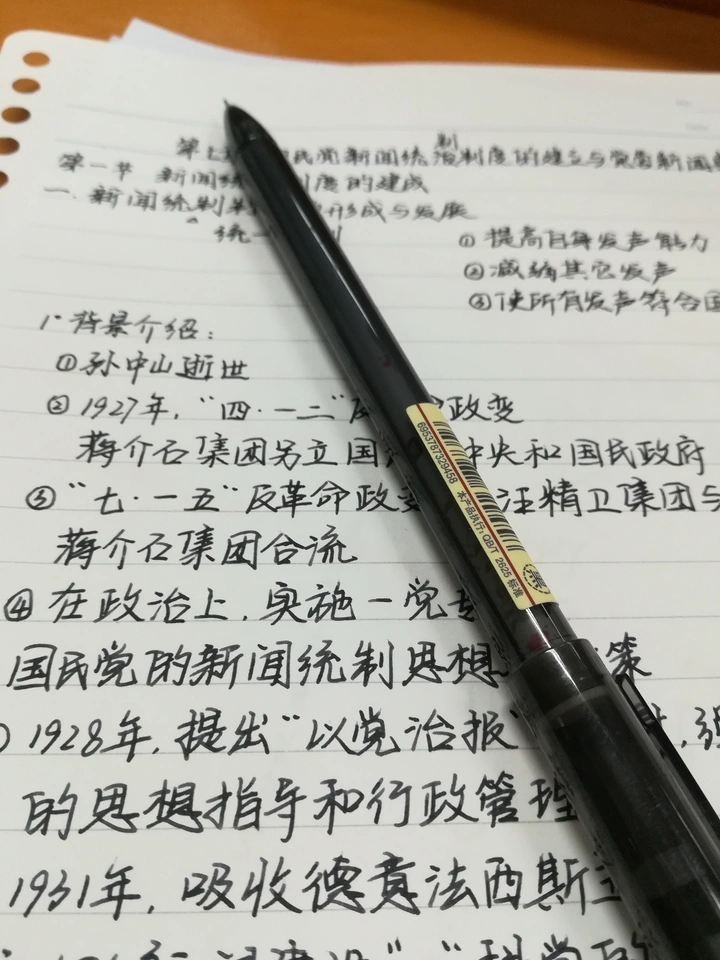 制
民党新闻统治制度的建立与党营新闻
第一节 新闻统 制度的建成
一. 新闻统制 形成与发展
统一
① 提高自身发声能力
② 减弱其它发声
③ 使所有发声符合国
1. 背景介绍:
① 孙中山逝世
② 1927年, "四·一二"反 政变
蒋介石集团另立国 中央和国民政府
③ "七·一五"反革命政变 汪精卫集团与
蒋介石集团合流
④ 在政治上, 实施一党专
国民党的新闻统制思想 策
1928年, 提出"以党治报" , 强
的思想指导和行政管理
1931年, 吸收德意法西斯主
6953787329458
本产品执行: QB/T 2625 标准